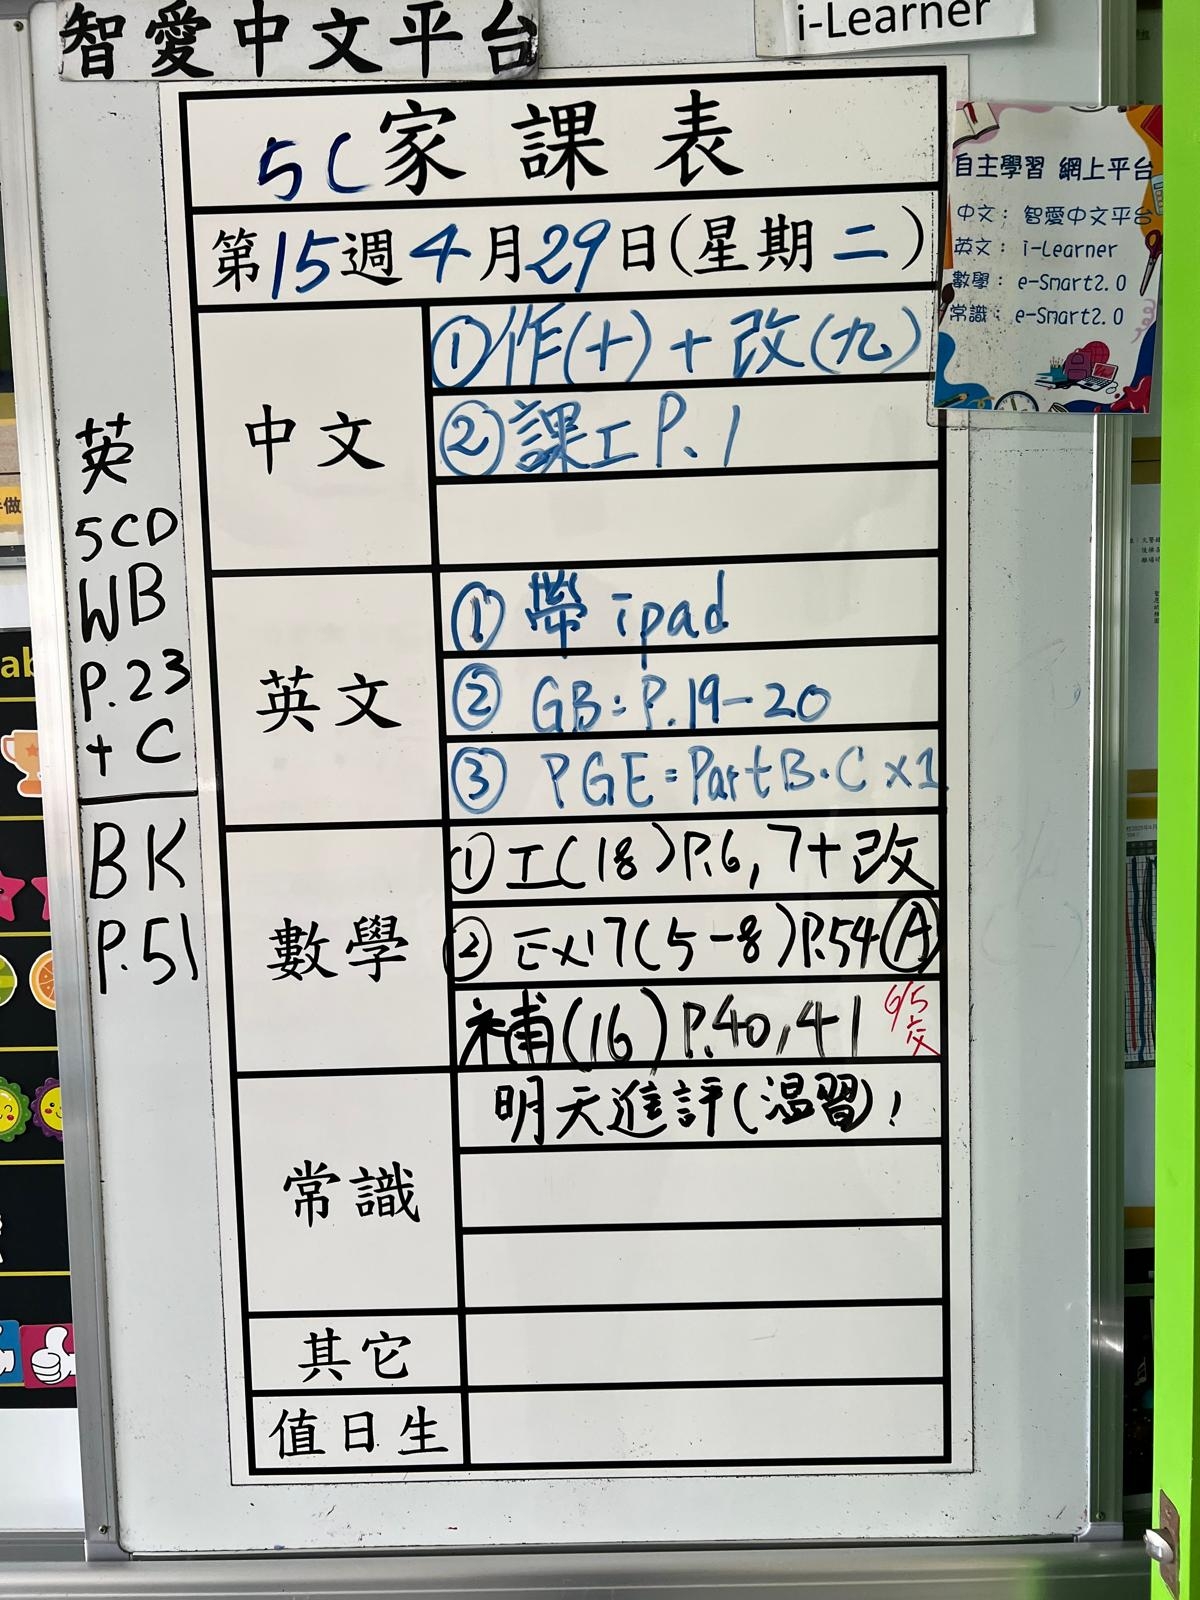 智愛中文平台
i-Learner
5C 家課表
第15週4月29日(星期二)
中文
①作(十)+改(九)
②課工P.1
英文
①帶ipad
②GB:P.19-20
③PGE:Part B、C x1
數學
①工(18)P.6,7+改
②Ex17(5-8)P.54Ⓐ
補(16)P.40,41 6/5交
常識
明天進評(溫習)!
其它
值日生
英
5CD
WB
P.23
+C
BK
P.51
自主學習 網上平台
中文:智愛中文平台
英文:i-Learner
數學:e-Smart2.0
常識:e-Smart2.0